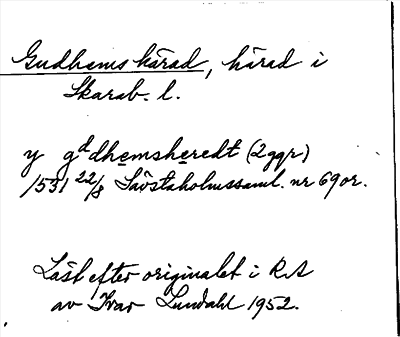 Gudhems härad, härad i
Skarab. l.
y gᵈdhemsheredt (2 ggr)
1531 22/8 Sävstaholmssaml. nr 69 or.
Läst efter originalet i RA
av Ivar Lundahl 1952.